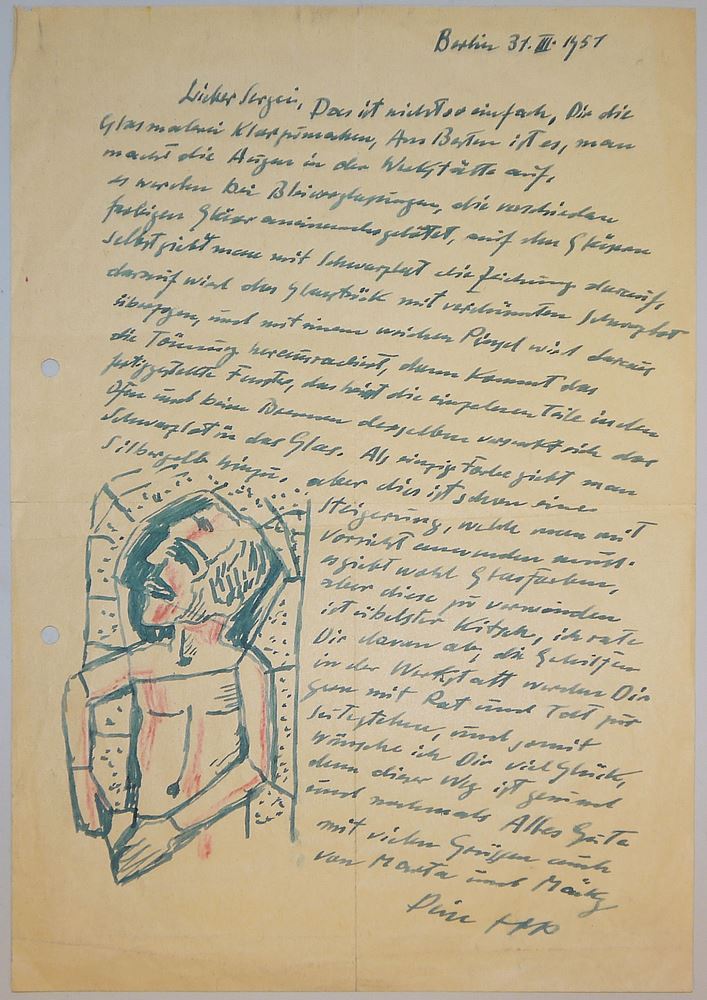 Berlin 31. III. 1951
Lieber Sergei, Das ist nicht so einfach, Dir die
Glasmalerei klarzumachen, Am Besten ist es, man
macht die Augen in der Werkstätte auf,
es werden bei Bleiverglasungen, die verschieden
farbigen Gläser aneinandergelötet, auf den Gläsern
selbst giebt man mit Schwarzlot die Zeichnung darauf,
darauf wird das Glasstück mit verdünnten Schwarzlot
überzogen, und mit einem weichen Pinsel wird daraus
die Tönung herausradiert, dann kommt das
fertiggestellte Fenster, das heist die einzelenen Teile in den
Ofen und beim Brennen desselben versenkt sich das
Schwarzlot in das Glas. Als einzige Farbe giebt man
Silbergelb hinzu, aber dies ist schon eine
Steigerung, welche man mit
Vorsicht anwenden muss.
es giebt wohl Glasfarben,
aber diese zu verwenden
ist übelster Kitsch, ich rate
Dir davon ab, die Gehilfen
in der Werkstatt werden Dir
gern mit Rat und Tat zur
Seite stehen, und somit
wünsche ich Dir viel Glück,
denn dieser Weg ist gesund
und nochmals Alles Gute
mit vielen Grüssen auch
von Marta und
Dein